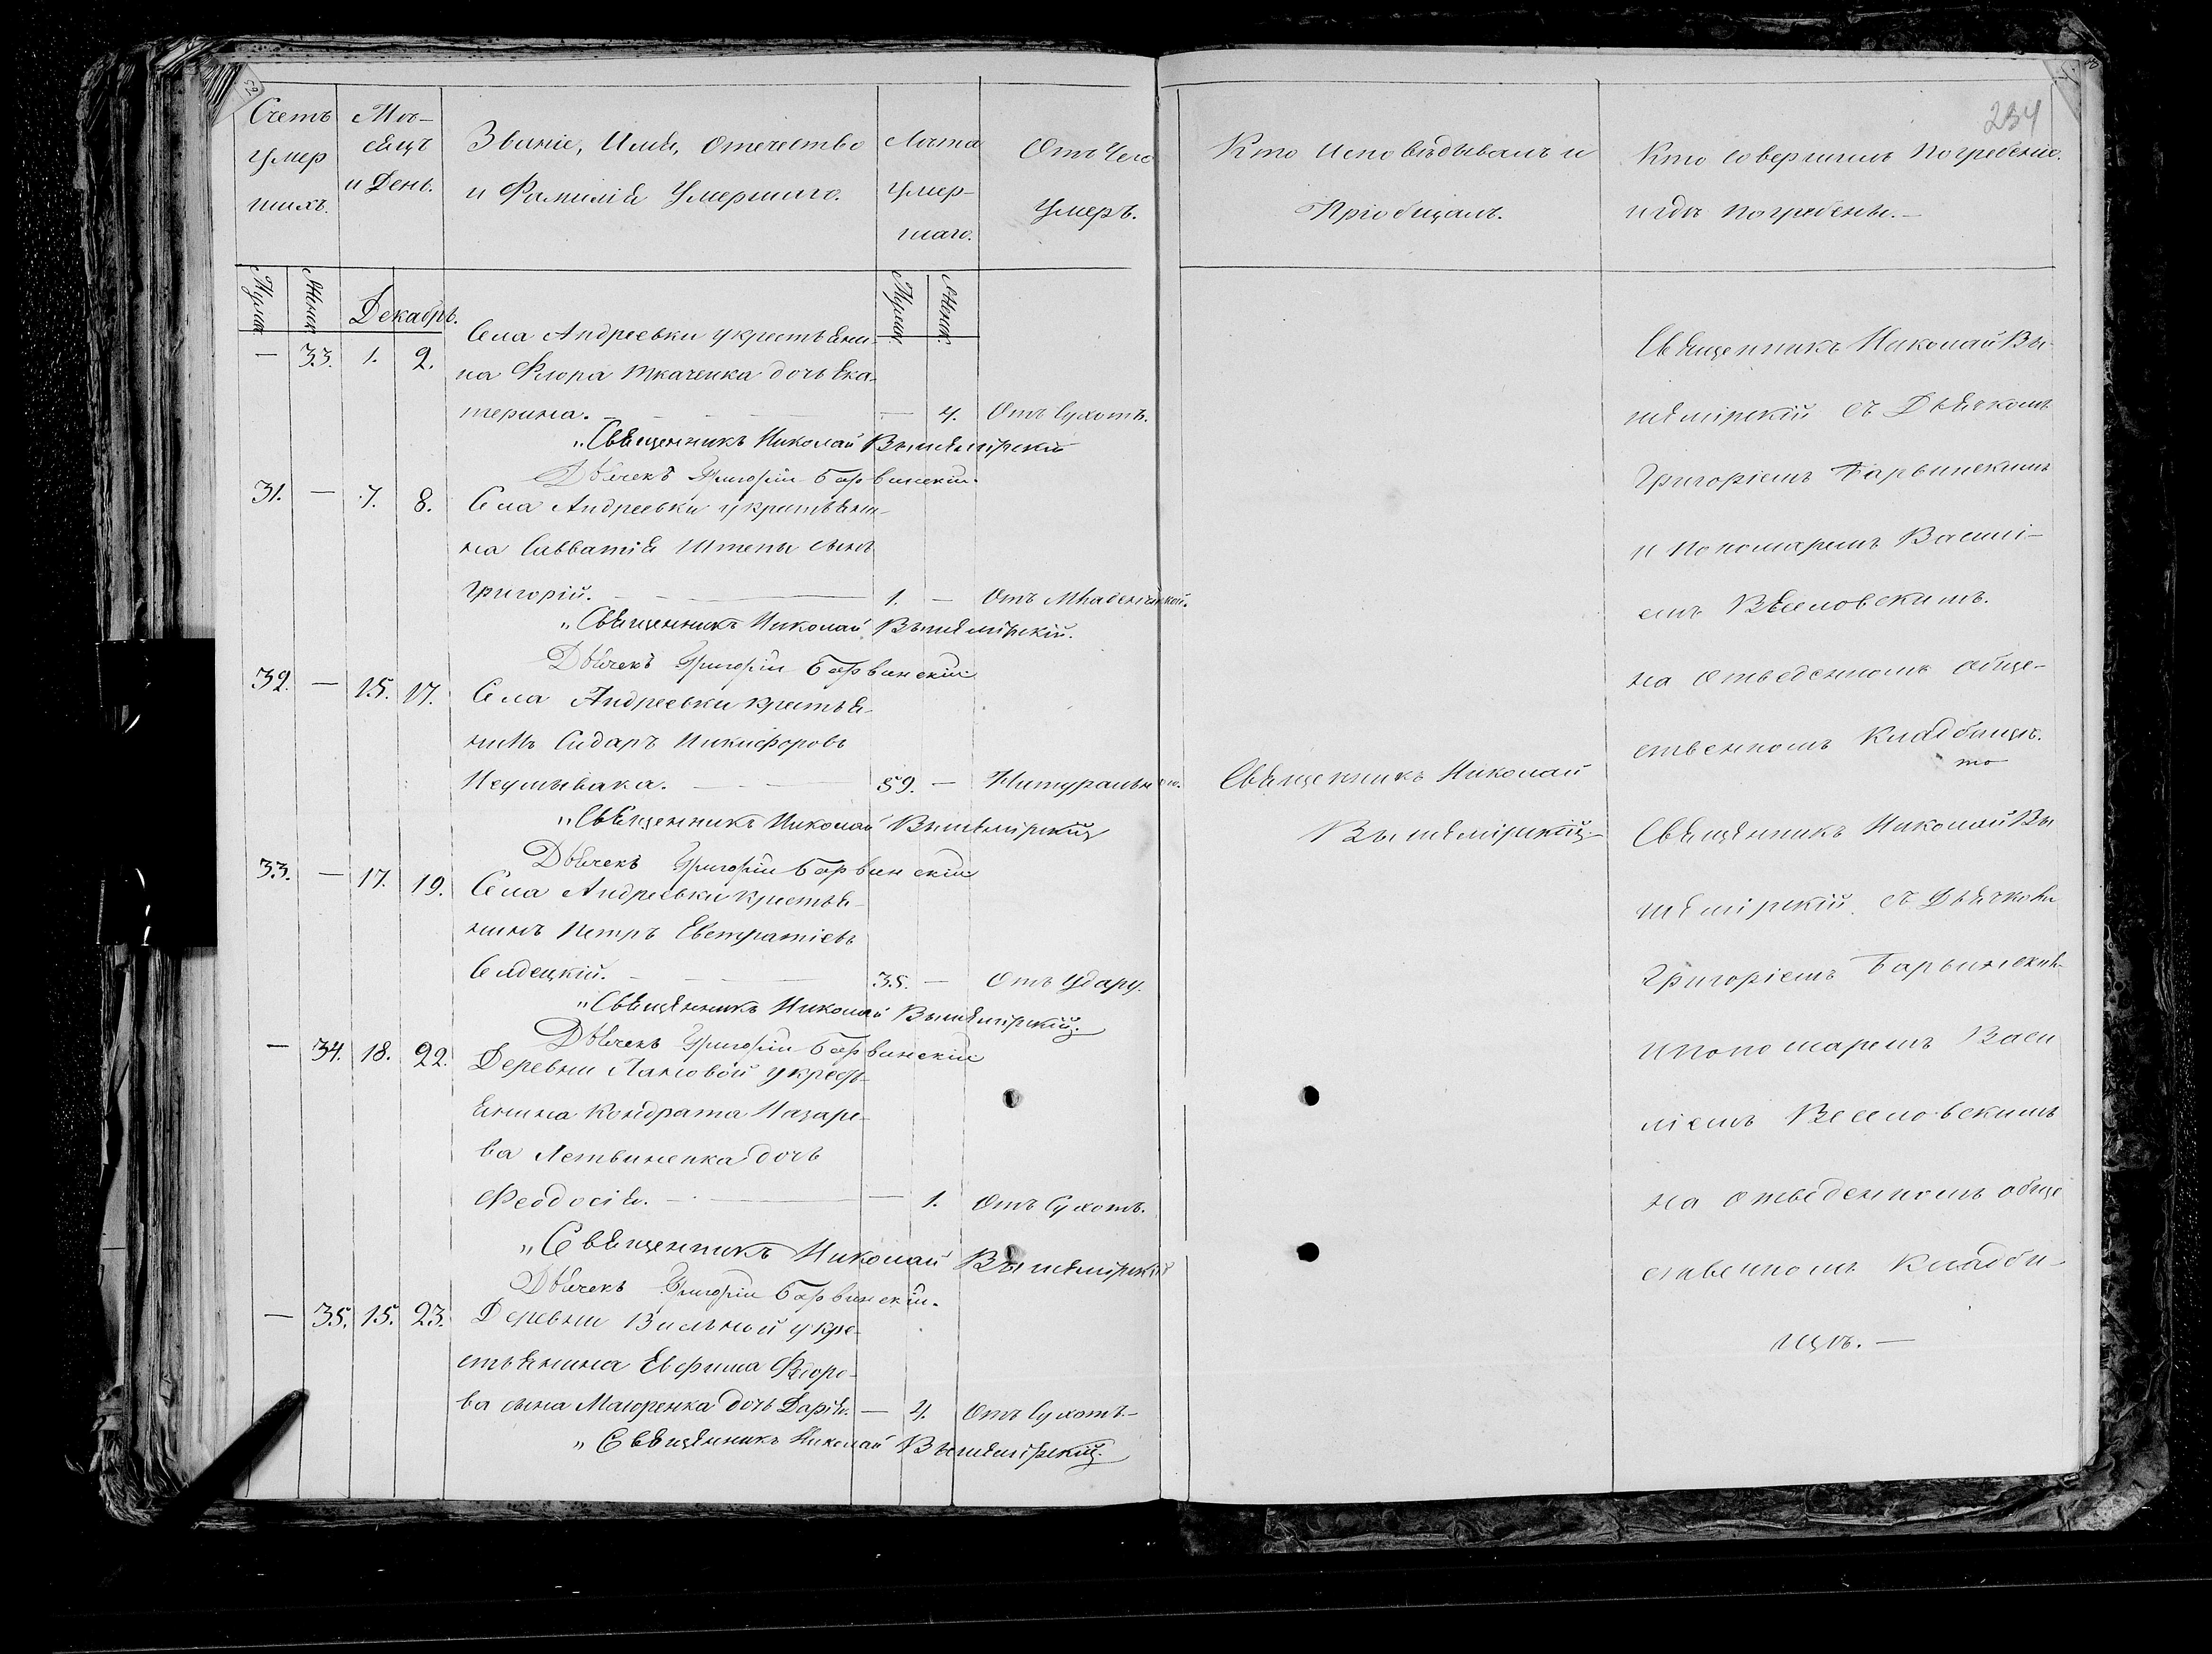 234
Счетъ умершихъ.
Мѣсяцъ и День.
Званіе, Имя, Отечество
и Фамилія Умершаго.
Лѣта умершаго.
Отъ Чего
Умеръ.
Кто Исповѣдывалъ и
Пріобщалъ.
Кто совершилъ Погребеніе.
и гдѣ погребены.—
Мужск.
Женск.
Декабрь.
Мужск.
Женск.
— 33. 1. 2. Села Андреевки у крестьяни-
на Флора Ткаченка дочь Ека-
терина. — — 4. Отъ Сухотъ.
„Священникъ Николай Вышемірскій
Дьячекъ Григорій Барвинскій.
31. — 7. 8. Села Андреевки у крестьяни-
на Савватія Штепы сынъ
Григорій. — 1. — Отъ Младенческой.
„Священникъ Николай Вышемірскій.
Дьячекъ Григорій Барвинскій
32. — 15. 17. Села Андреевки крестья-
нинъ Сидаръ Никифоровъ
Неумывака. — 59. — Натурально.
„Священникъ Николай Вышемірскій
Дьячекъ Григорій Барвинскій
33. — 17. 19. Села Андреевки крестья-
нинъ Петръ Евстратіевъ
Селдецкій. — 35. — Отъ Удару.
„Священникъ Николай Вышемірскій.
Дьячекъ Григорій Барвинскій
— 34. 18. 22. Деревни Лановой у крест-
янина Кондрата Назаре-
ва Летвиненка дочь
Феодосія. — — 1. Отъ Сухотъ.
„Священникъ Николай Вышемірскій
Дьячекъ Григорій Барвинскій.
— 35. 15. 23. Деревни Вильной у кре-
стьянина Евфима Федоро-
ва сына Маюренка дочь Дарія. — 4. Отъ Сухотъ.—
„Священникъ Николай Вышемірскій.
Священникъ Николай
Вышемірскій.—
Священникъ Николай Вы-
шемірскій съ Дьячкомъ
Григоріемъ Барвинскимъ
и Пономаремъ Василі-
емъ Веселовскимъ.
на Отведенномъ обще-
ственномъ Кладбищѣ.
то
Священникъ Николай Вы
шемірскій съ Дьячкомъ
Григоріемъ Барвинским
и пономаремъ Васи
ліемъ Веселовскимъ
на отведенномъ обще
ственномъ Кладби-
щѣ.—